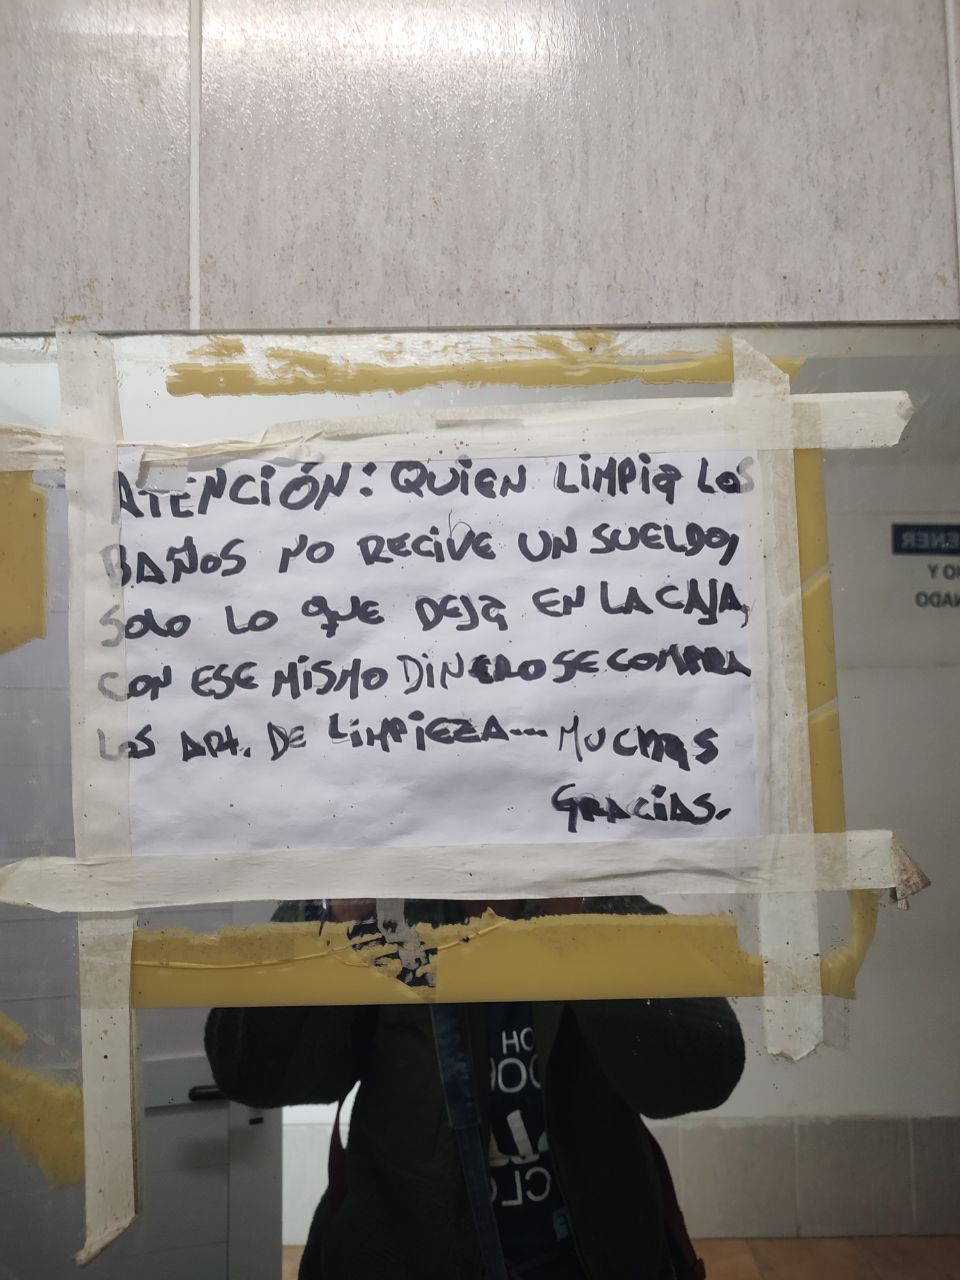 ATENCIÓN: QUIEN LIMPIA LOS
BAÑOS NO RECIVE UN SUELDO,
SOLO LO QUE DEJA EN LA CAJA,
CON ESE MISMO DINERO SE COMPRA
LOS ART. DE LIMPIEZA... MUCHAS
GRACIAS.
ENER
O Y
NADO